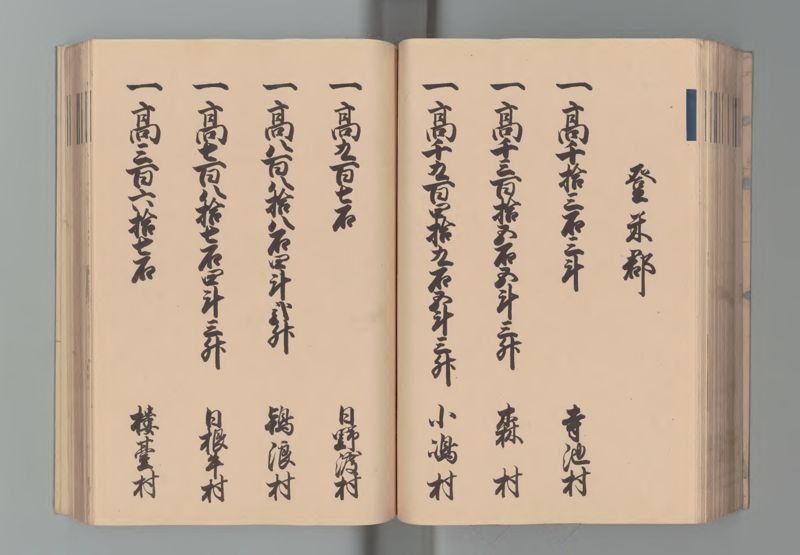 登米郡
一高千拾三石三斗 寺池村
一高千三百拾五石五斗三升 森村
一高千九百四拾九石五斗三升 小嶋村
一高九百七石 日野渡村
一高八百八拾八石四斗弐升 鴇浪村
一高七百八拾七石四斗三升 日根牛村
一高三百六拾七石 楼臺村